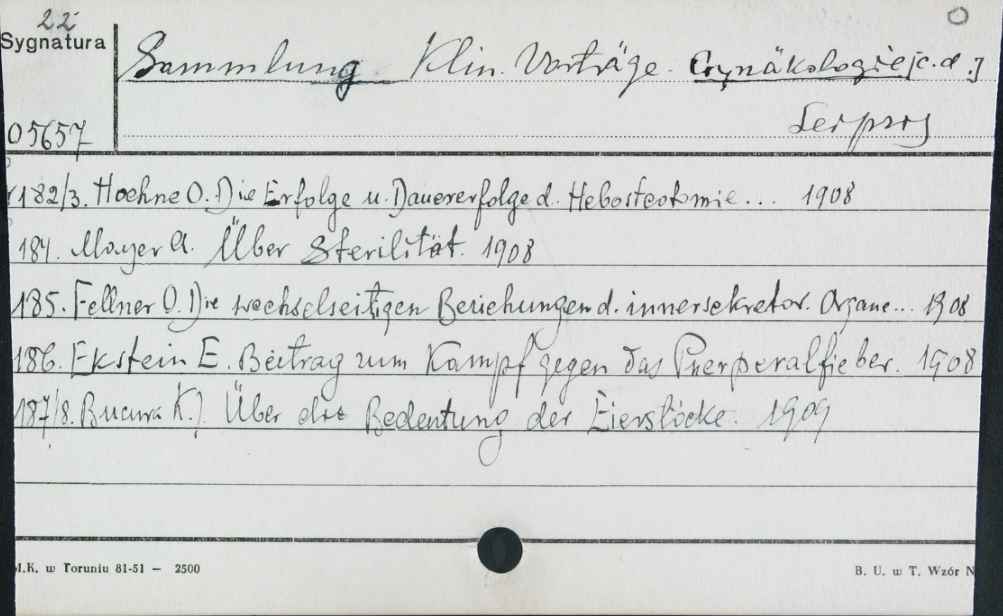 22
Sygnatura
Sammlung Klin. Vorträge. Gynäkologie [c.d.]
05657 Leipzig
182/3. Hoehne O. Die Erfolge u. Dauererfolge d. Hebosteotomie... 1908
184. Mayer A. Über Sterilität. 1908
185. Fellner O. Die wechselseitigen Beziehungen d. innersekretor. Organe... 1908
186. Ekstein E. Beitrag zum Kampf gegen das Puerperalfieber. 1908
187/8. Bucura K.J. Über die Bedeutung der Eierstöcke. 1909
M.K. w Toruniu 81-51 — 2500
B. U. w T. Wzór N